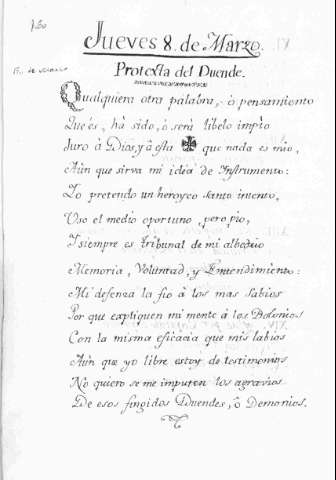 Jueves 8. de Marzo.
Protexta del Duende.
Qualquiera otra palabra, ò pensamiento
Que és, ha sido, ò será libelo impio
Juro à Dios, y à esta ✠ que nada es mio,
Aùn que sirva mi idéa de Instrumento:
Lo pretendo un heroyco santo intento,
Uso el medio oportuno, pero pio,
Y siempre es tribunal de mi albedrio
Memoria, Voluntad, y Entendimiento:
Mi defenza la fio à los mas Sabios
Por que expliquen mi mente à los Bolonios
Con la misma eficacia que mis labios
Aùn que yo libre estoy de testimonios
No quiero se me imputen los agravios
De esos fingidos Duendes, ô Demonios.